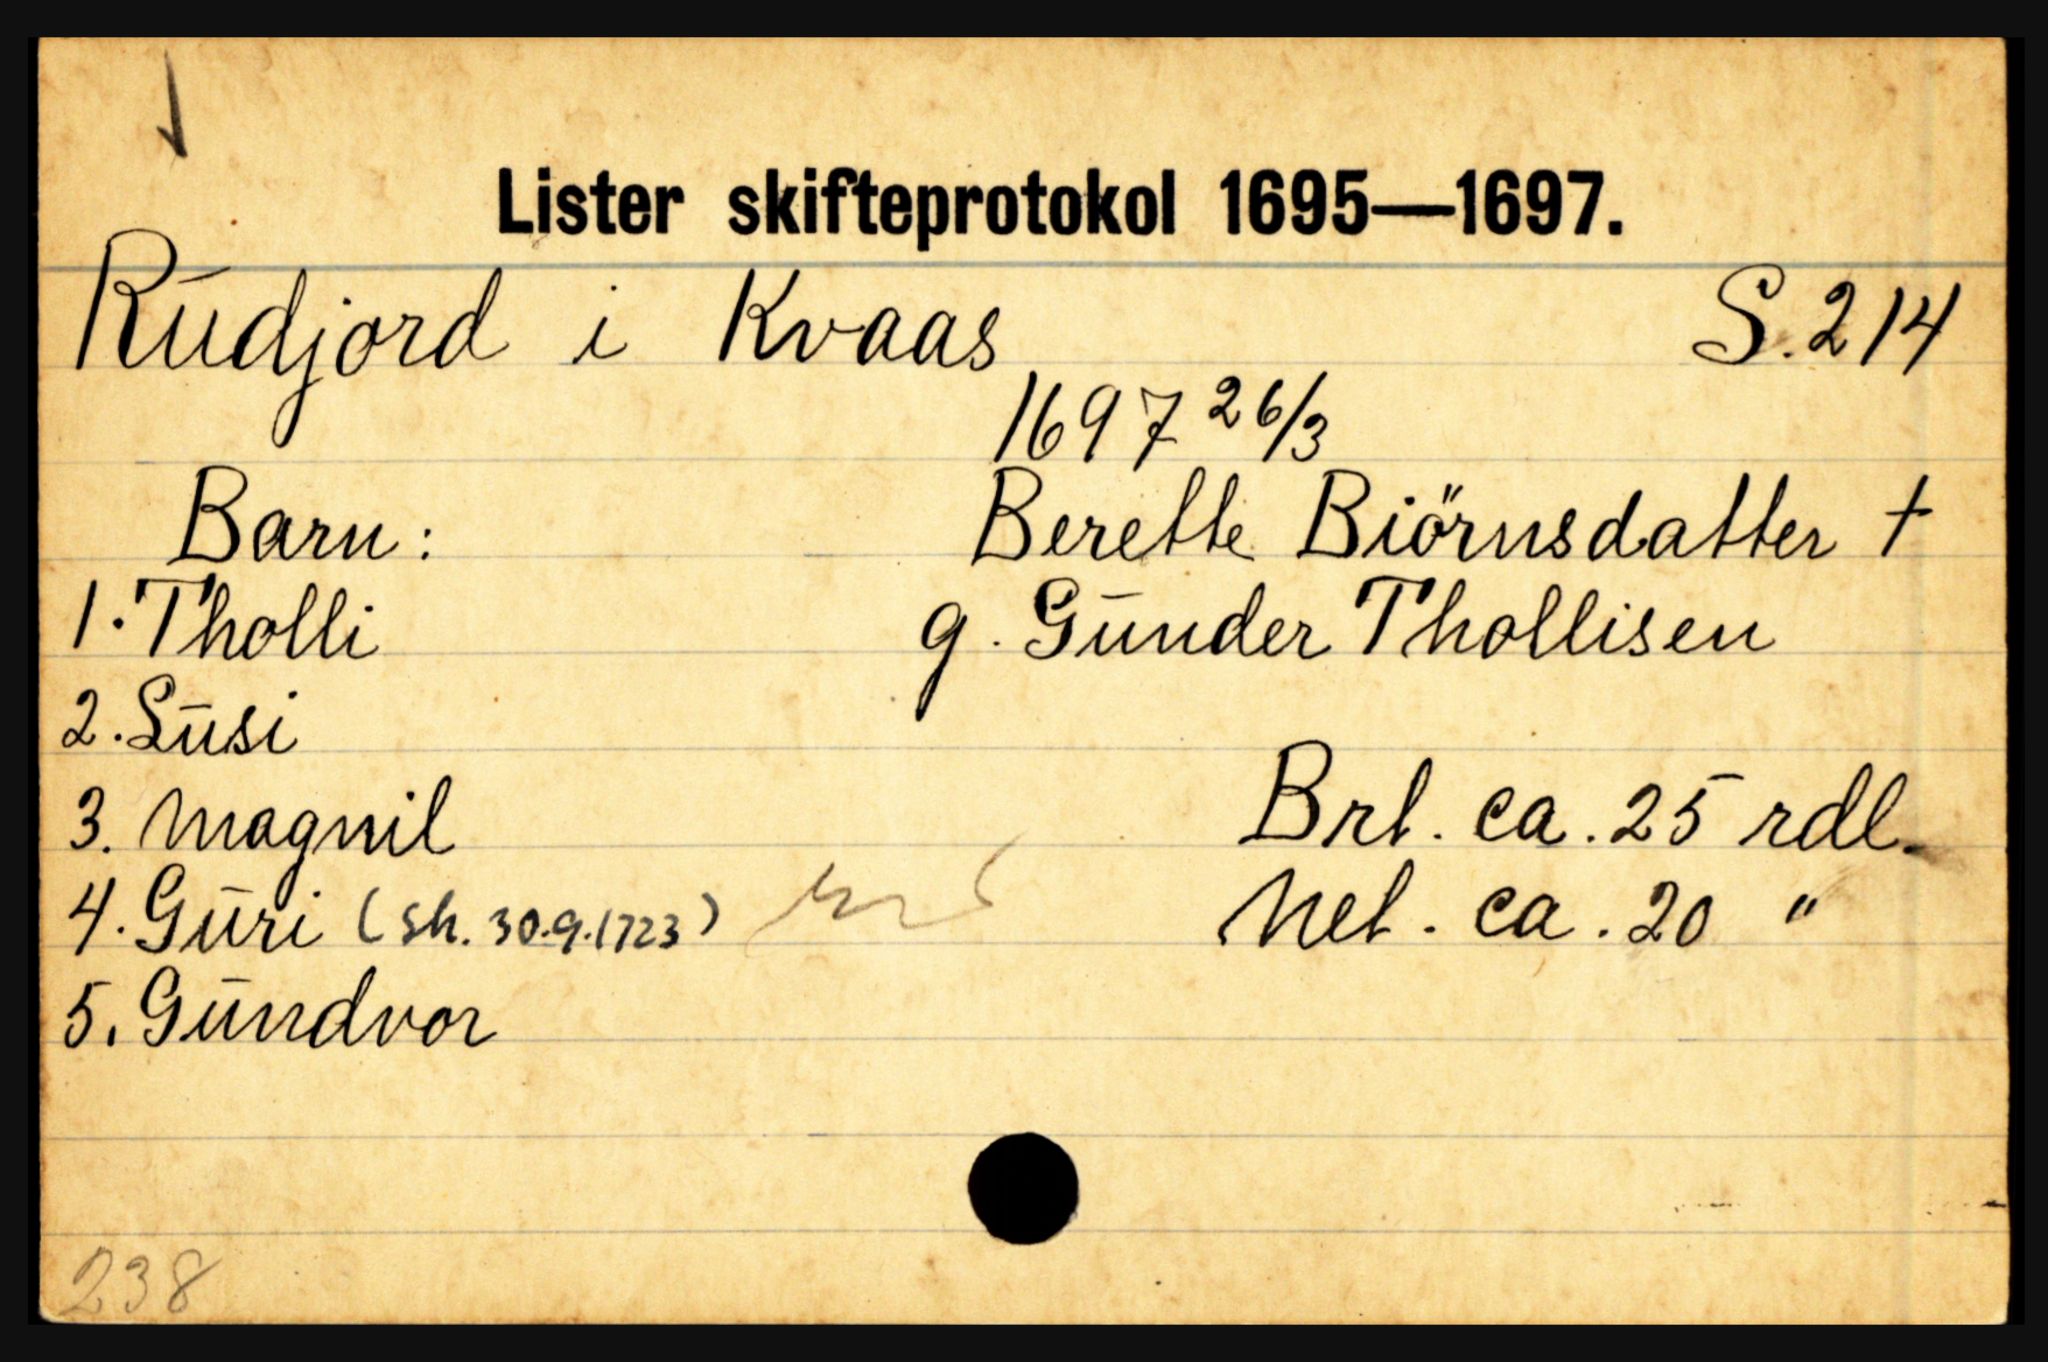 Lister skifteprotokol 1695—1697.
Rudjord i Kvaas S. 214
1697 26/3
Barn: Berette Biörnsdatter †
1. Tholli g. Gunder Thollisen
2. Susi
3. Magnil Brt. ca. 25 rdl.
4. Guri (sk. 30.9.1723) Net. ca. 20 "
5. Gundvor
238